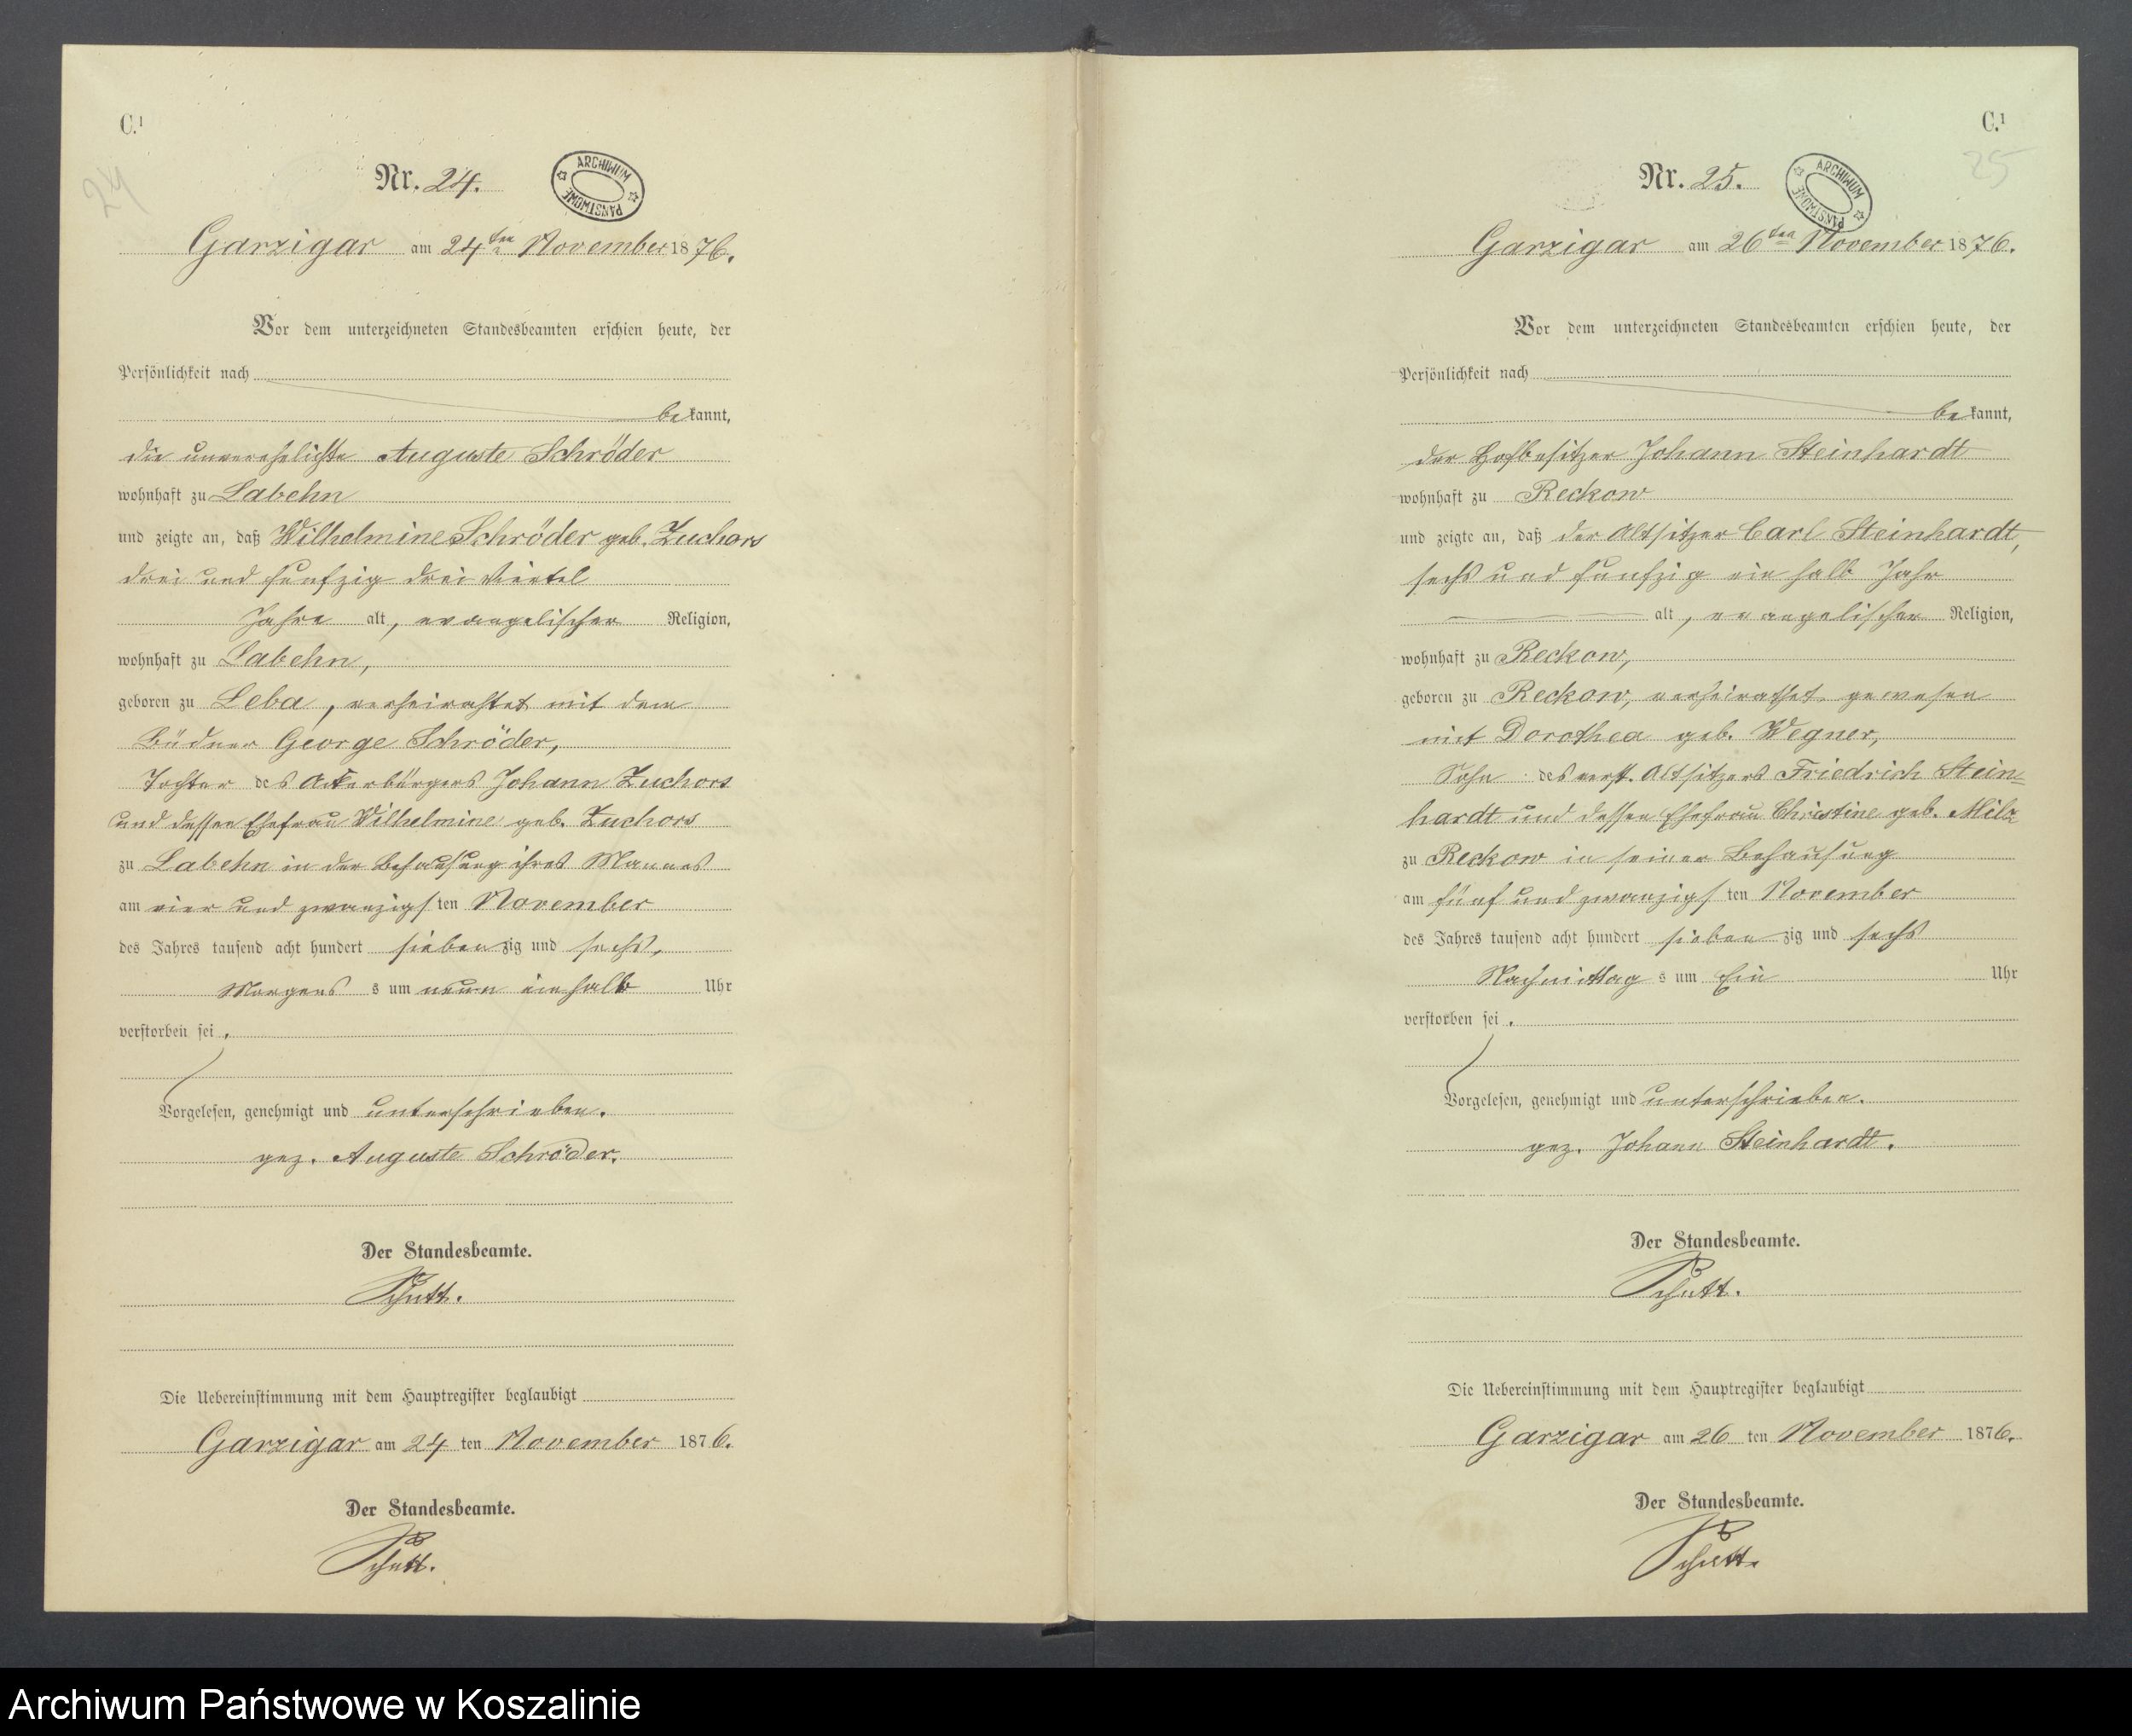 C.¹
24
Nr. 24.
ARCHIWUM PAŃSTWOWE
Garzigar am 24ten November 1876.
Vor dem unterzeichneten Standesbeamten erschien heute, der
Persönlichkeit nach
bekannt,
die unverehelichte Auguste Schröder
wohnhaft zu Labehn
und zeigte an, daß Wilhelmine Schröder geb. Zuchors
drei und funfzig drei Viertel
Jahre alt, evangelischer Religion,
wohnhaft zu Labehn,
geboren zu Leba, verheirathet mit dem
Büdner George Schröder,
Tochter des Ackerbürgers Johann Zuchors
und dessen Ehefrau Wilhelmine geb. Zuchors
zu Labehn in der Behausung ihres Mannes
am vier und zwanzigsten November
des Jahres tausend acht hundert siebenzig und sechs,
Morgens s um neun einhalb Uhr
verstorben sei.
Vorgelesen, genehmigt und unterschrieben.
gez. Auguste Schröder.
Der Standesbeamte.
Schutt.
Die Uebereinstimmung mit dem Hauptregister beglaubigt
Garzigar am 24 ten November 1876.
Der Standesbeamte.
Schutt.
C.¹
25
Nr. 25.
ARCHIWUM PAŃSTWOWE
Garzigar am 26ten November 1876.
Vor dem unterzeichneten Standesbeamten erschien heute, der
Persönlichkeit nach
bekannt,
der Hofbesitzer Johann Steinhardt
wohnhaft zu Reckow
und zeigte an, daß der Altsitzer Carl Steinhardt,
sechs und funfzig ein halb Jahr
alt, evangelischer Religion,
wohnhaft zu Reckow,
geboren zu Reckow, verheirathet gewesen
mit Dorothea geb. Wegner,
Sohn des verst. Altsitzers Friedrich Stein=
hardt und dessen Ehefrau Christine geb. Milz
zu Reckow in seiner Behausung
am fünf und zwanzigsten November
des Jahres tausend acht hundert siebenzig und sechs
Nachmittags um Ein Uhr
verstorben sei.
Vorgelesen, genehmigt und unterschrieben.
gez. Johann Steinhardt.
Der Standesbeamte.
Schutt.
Die Uebereinstimmung mit dem Hauptregister beglaubigt
Garzigar am 26 ten November 1876.
Der Standesbeamte.
Schutt.
Archiwum Państwowe w Koszalinie